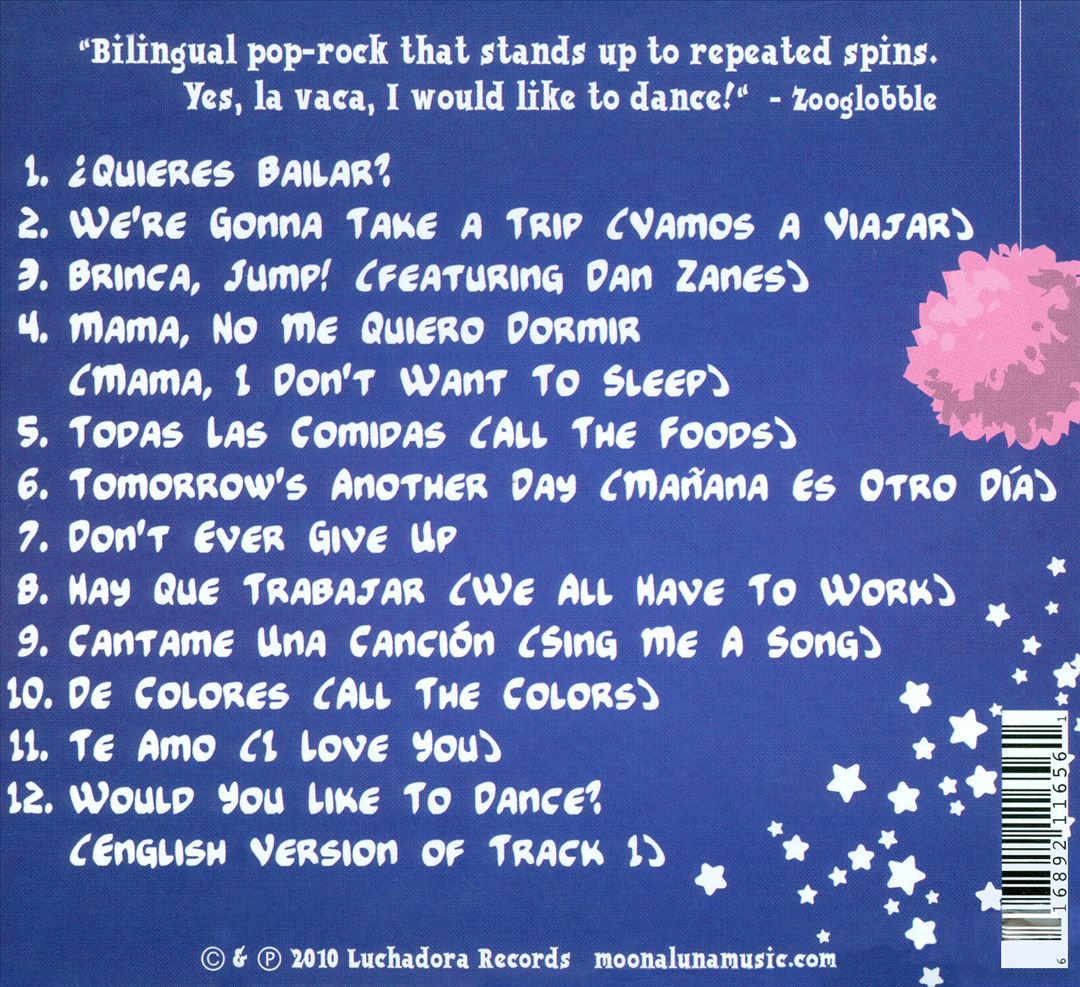 “Bilingual pop-rock that stands up to repeated spins.
Yes, la vaca, I would like to dance!“ - Zooglobble
1. ¿Quieres Bailar?
2. We're Gonna Take a Trip (Vamos a Viajar)
3. Brinca, Jump! (featuring Dan Zanes)
4. Mama, No Me Quiero Dormir
(Mama, I Don't Want To Sleep)
5. Todas Las Comidas (All The Foods)
6. Tomorrow's Another Day (Mañana Es Otro Día)
7. Don't Ever Give Up
8. Hay Que Trabajar (We All Have To Work)
9. Cantame Una Canción (Sing Me A Song)
10. De Colores (All The Colors)
11. Te Amo (I Love You)
12. Would You Like To Dance?
(English Version of Track 1)
6 16892 11656 1
© & ℗ 2010 Luchadora Records moonalunamusic.com